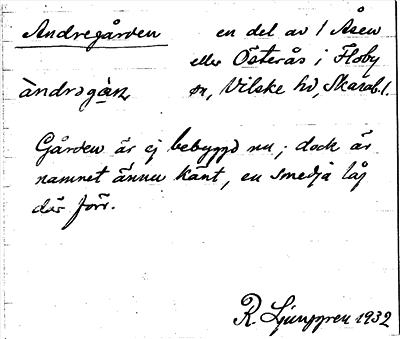 Andregården
en del av 1 Åsen
eller Österås i Floby
àndrəgàn
sn, Vilske hd, Skarab.l.
Gården är ej bebyggd nu; dock är
namnet ännu känt, en smedja låg
där förr.
R. Ljunggren 1932